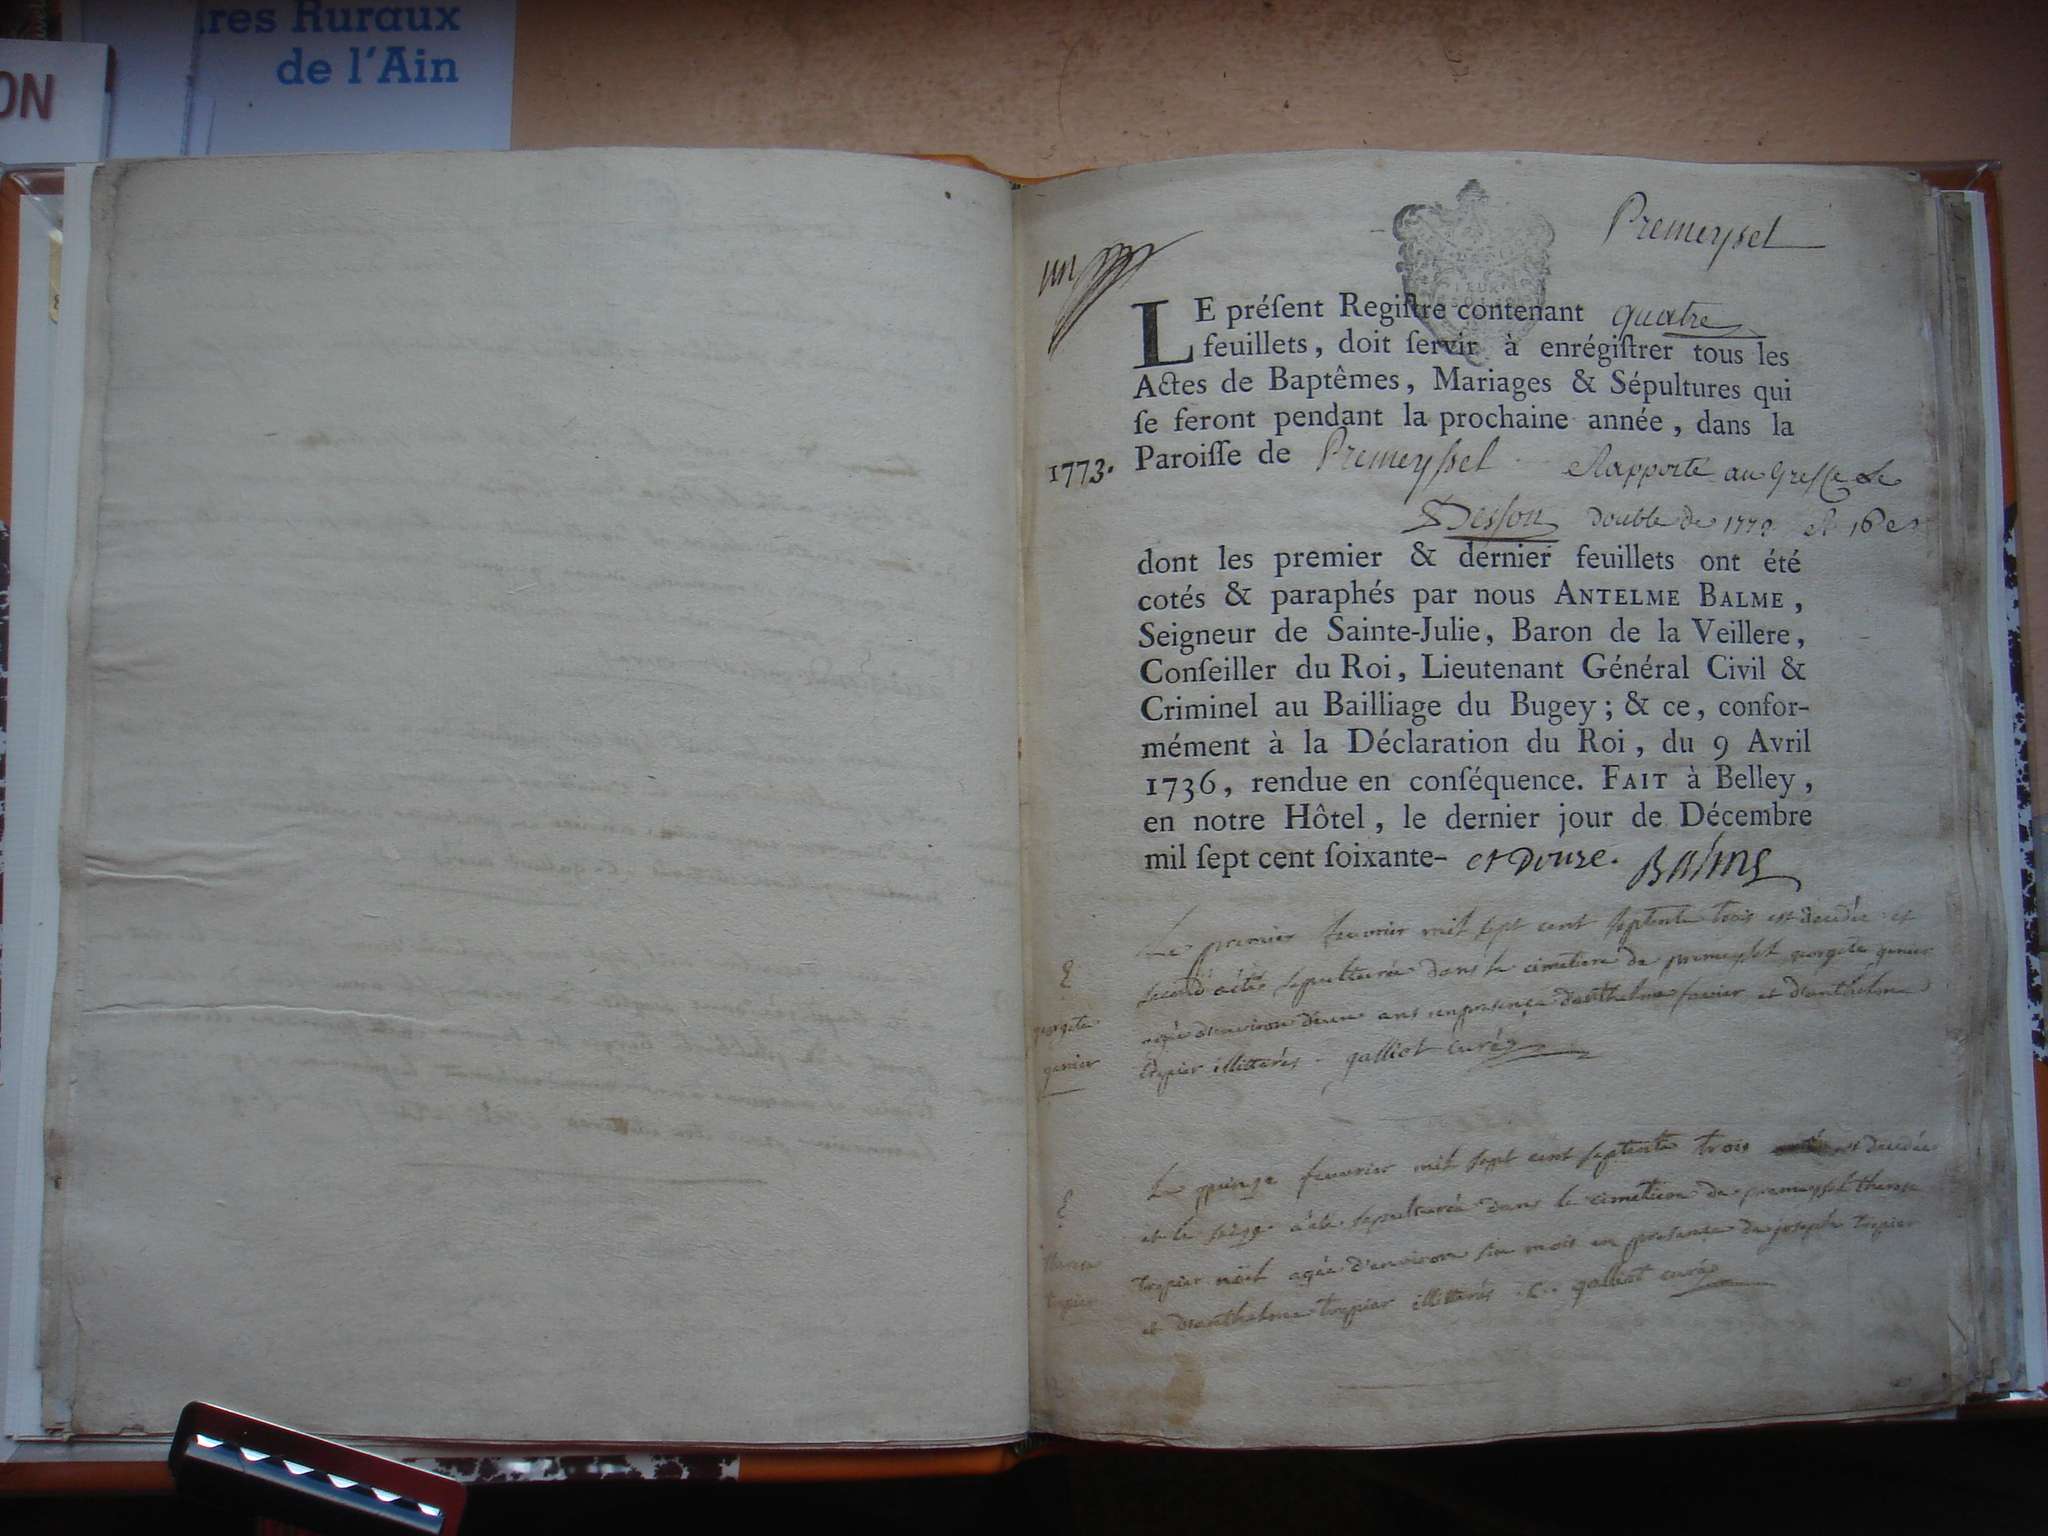 res Ruraux
de l'Ain
ON
Premeyssel
un
LE préſent Regiſtre contenant quatre
feuillets, doit ſervir à enrégiſtrer tous les
Actes de Baptêmes, Mariages & Sépultures qui
ſe feront pendant la prochaine année, dans la
1773. Paroiſſe de Premeyssel Rapporté au Greffe le
double de
dont les premier & dernier feuillets ont été
cotés & paraphés par nous ANTELME BALME,
Seigneur de Sainte-Julie, Baron de la Veillere,
Conſeiller du Roi, Lieutenant Général Civil &
Criminel au Bailliage du Bugey; & ce, confor-
mément à la Déclaration du Roi, du 9 Avril
1736, rendue en conſéquence. FAIT à Belley,
en notre Hôtel, le dernier jour de Décembre
mil ſept cent ſoixante- et douze. Balme
Le premier feuvrier mil sept cent septente trois est decedée et
second a été sepulturée dans le cimetiere de premeyssel georgete genier
agée d'environ deux ans en presence d'anthelme favier et d'anthelme
trepier illitterés galliot curé
georgete
genier
Le quinze feuvrier mil sept cent septente trois est decedée
et le seize a été sepulturée dans le cimetiere de premeyssel therese
trepier agée d'environ six mois en presence de joseph trepier
et d'anthelme trepier illitterés galliot curé
therese
trepier